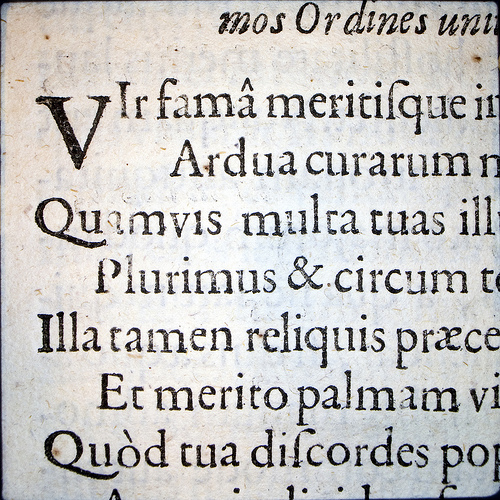 mos Ordines
VIr famâ meritiſque
Ardua curarum
Quamvis multa tuas
Plurimus & circum
Illa tamen reliquis
Et merito palmam
Quòd tua diſcordes